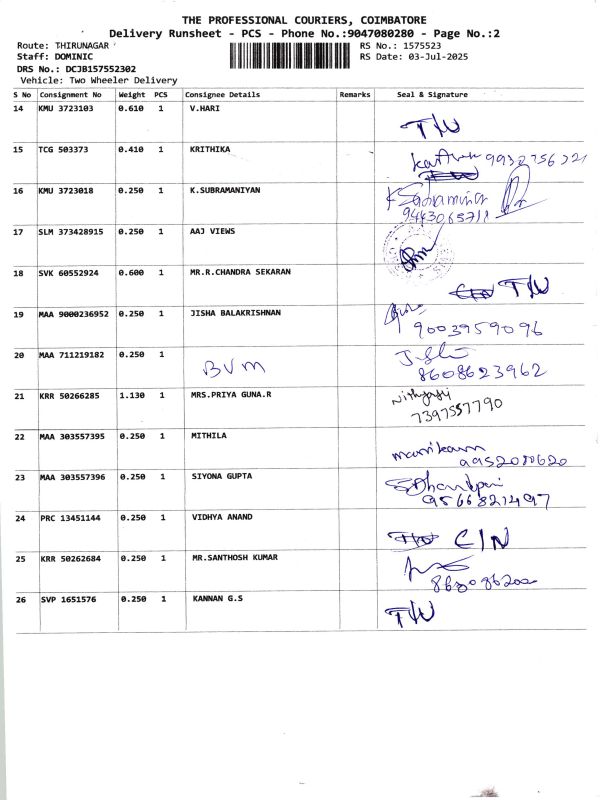 THE PROFESSIONAL COURIERS, COIMBATORE
Delivery Runsheet - PCS - Phone No.:9047080280 - Page No.:2
Route: THIRUNAGAR RS No.: 1575523
Staff: DOMINIC RS Date: 03-Jul-2025
DRS No.: DCJB157552302
Vehicle: Two Wheeler Delivery
S No Consignment No Weight PCS Consignee Details Remarks Seal & Signature
14 KMU 3723103 0.610 1 V.HARI
15 TCG 503373 0.410 1 KRITHIKA
16 KMU 3723018 0.250 1 K.SUBRAMANIYAN
9443065711
17 SLM 373428915 0.250 1 AAJ VIEWS
18 SVK 60552924 0.600 1 MR.R.CHANDRA SEKARAN
19 MAA 9000236952 0.250 1 JISHA BALAKRISHNAN
9003959096
20 MAA 711219182 0.250 1 BVM
8608623962
21 KRR 50266285 1.130 1 MRS.PRIYA GUNA.R
7397557790
22 MAA 303557395 0.250 1 MITHILA
23 MAA 303557396 0.250 1 SIYONA GUPTA
9566821497
24 PRC 13451144 0.250 1 VIDHYA ANAND
25 KRR 50262684 0.250 1 MR.SANTHOSH KUMAR
26 SVP 1651576 0.250 1 KANNAN G.S